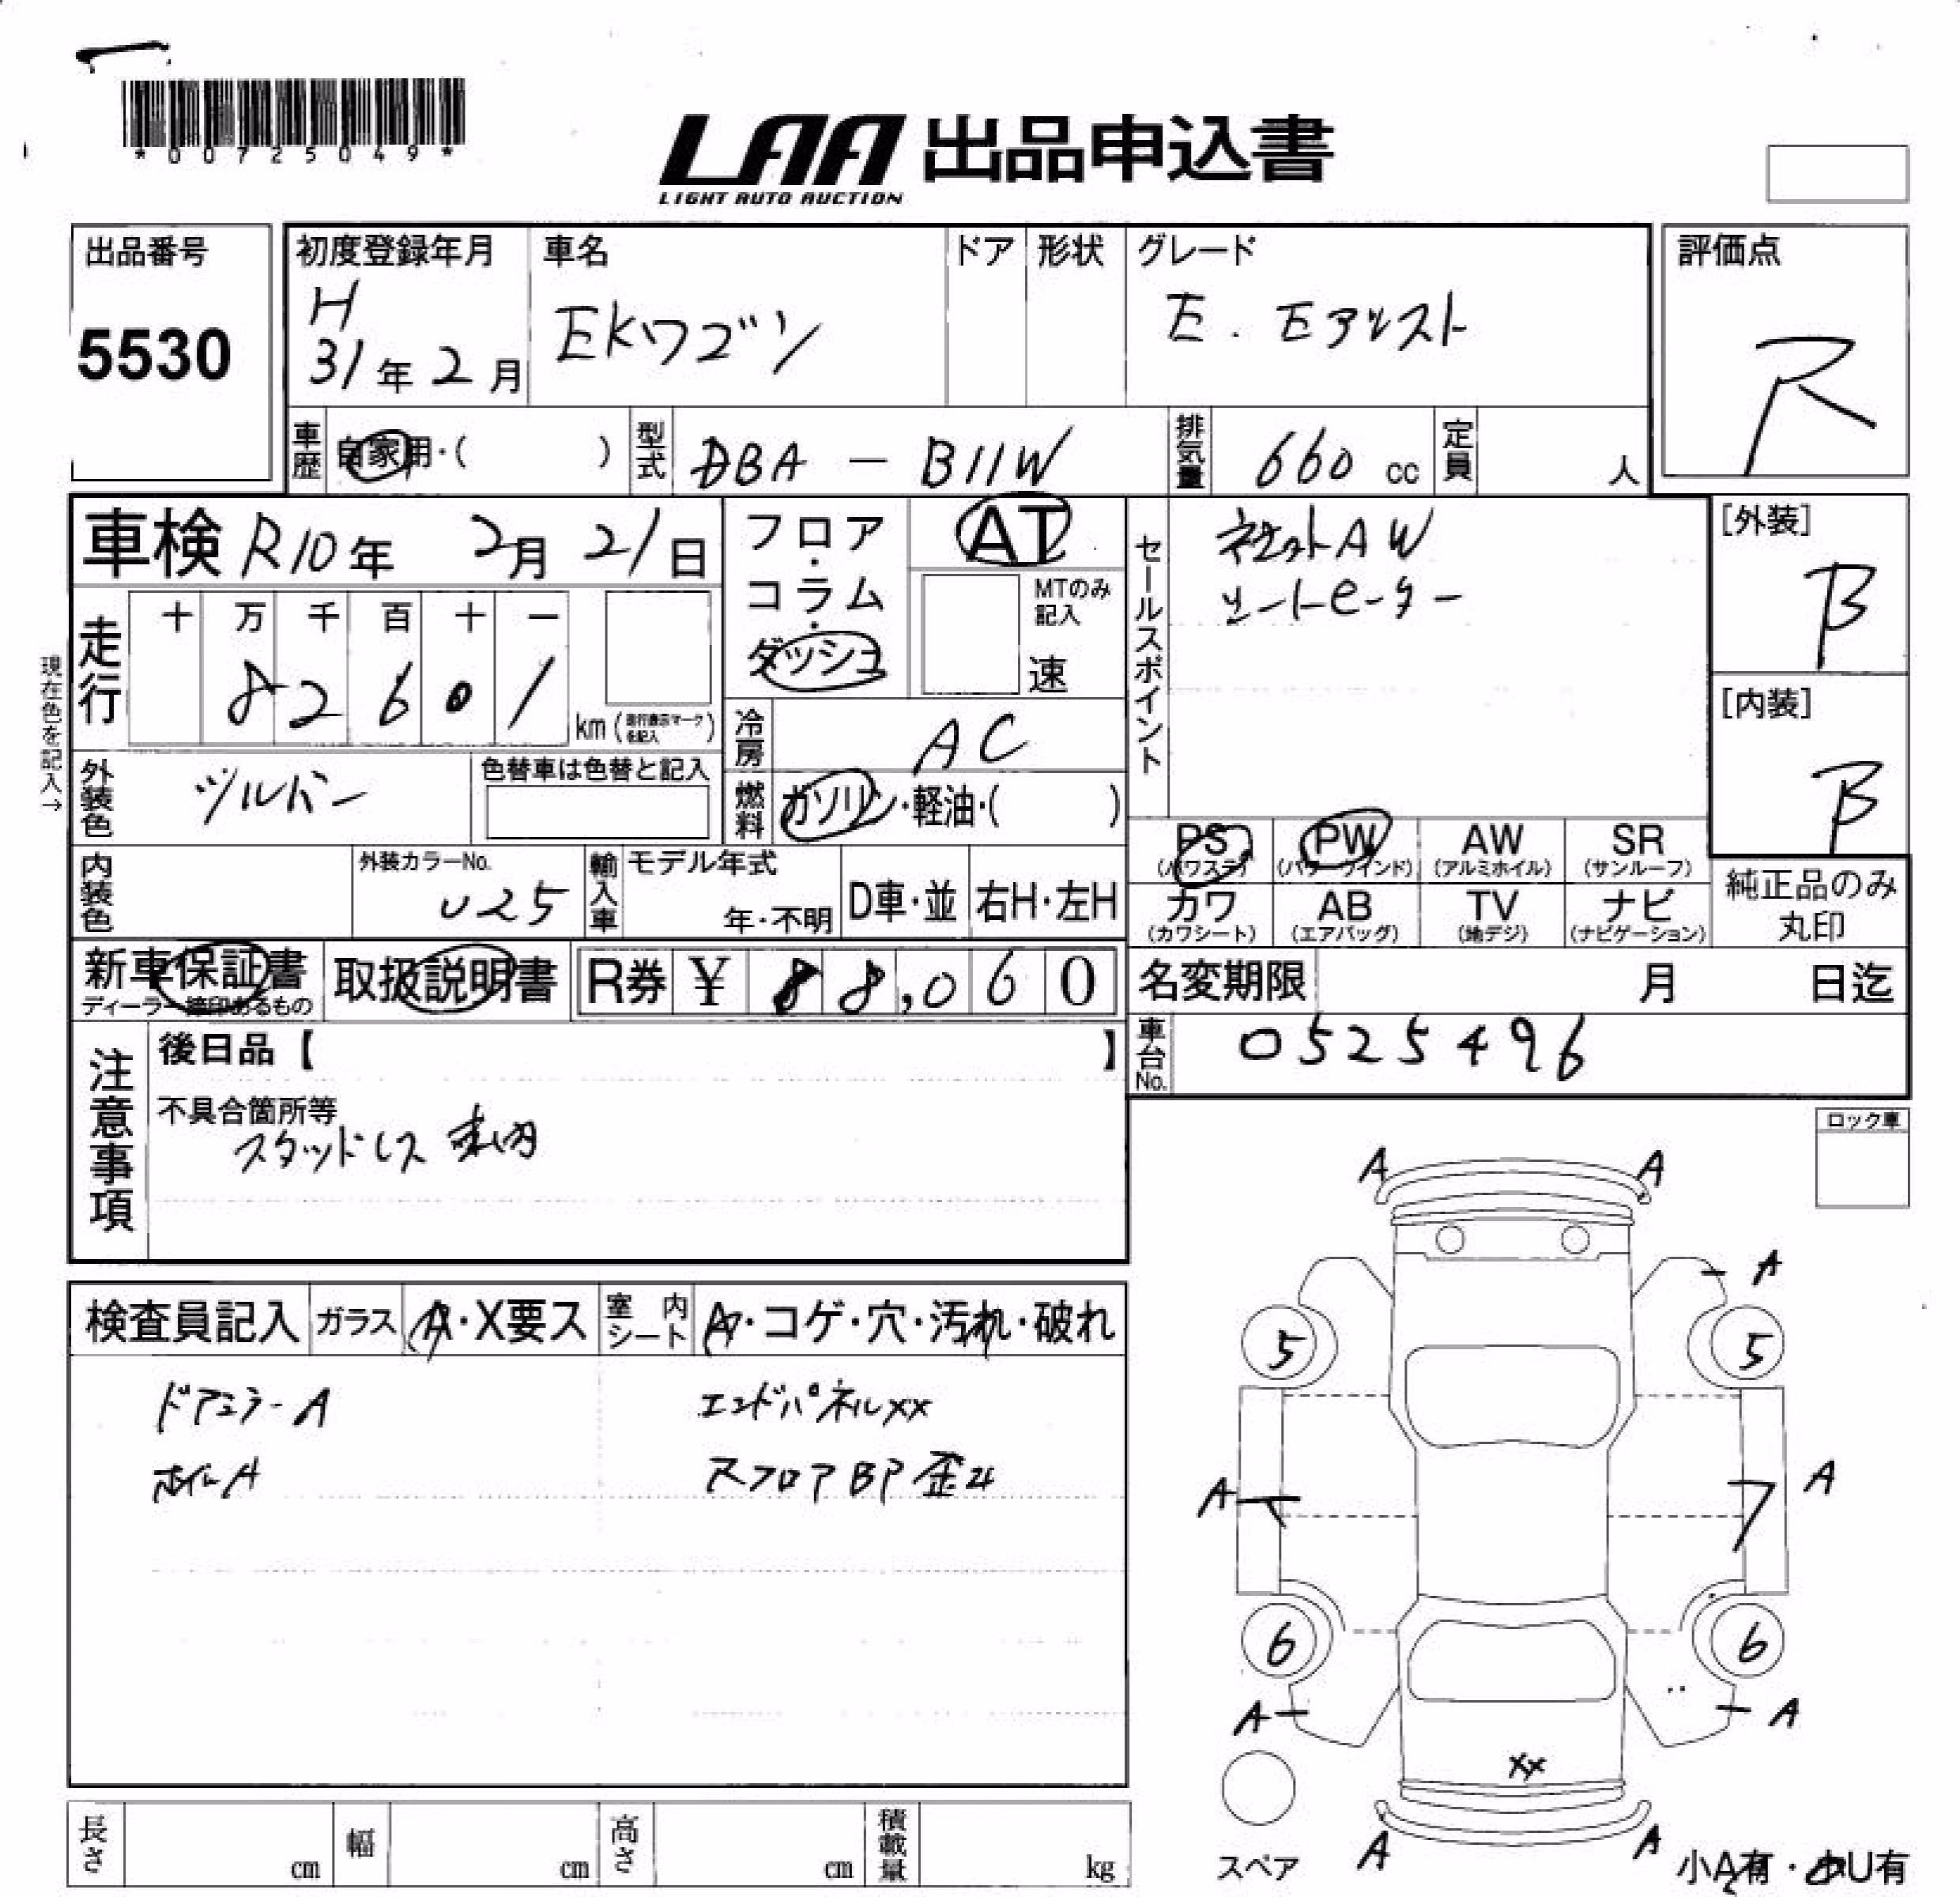 *00725049*
LAA 出品申込書
LIGHT AUTO AUCTION
出品番号
5530
初度登録年月
H
31年2月
車名
EKワゴン
ドア
形状
グレード
E. Eアシスト
評価点
R
車歴
自家用・( )
型式
DBA - B11W
排気量
660 cc
定員
人
車検 R10年 2月 21日
フロア・コラム・ダッシュ
AT
MTのみ記入
速
セールスポイント
社外AW
シートヒーター
[外装]
B
[内装]
B
現在色を記入→
走行
十 万 千 百 十 一
8 2 6 0 1
km (走行表示マークを記入)
冷房
AC
外装色
シルバー
色替車は色替と記入
燃料
ガソリン・軽油・( )
PS
(パワステ)
PW
(パワーウインド)
AW
(アルミホイル)
SR
(サンルーフ)
カワ
(カワシート)
AB
(エアバッグ)
TV
(地デジ)
ナビ
(ナビゲーション)
純正品のみ
丸印
内装色
外装カラーNo.
U25
輸入車
モデル年式
年・不明
D車・並
右H・左H
新車保証書
ディーラー捺印あるもの
取扱説明書
R券 ¥ 88,060
名変期限
月 日迄
車台No.
0525496
注意事項
後日品【 】
不具合箇所等
スタッドレス 車内
ロック車
検査員記入
ガラス
A・X要ス
室内シート
A・コゲ・穴・汚れ・破れ
ドアミラーA
エンドパネルXX
ホイルA
RフロアBP歪み
A A
A
5 5
A A
6 6
A A
XX
A A
スペア
小A有・小U有
長さ
cm
幅
cm
高さ
cm
積載量
kg